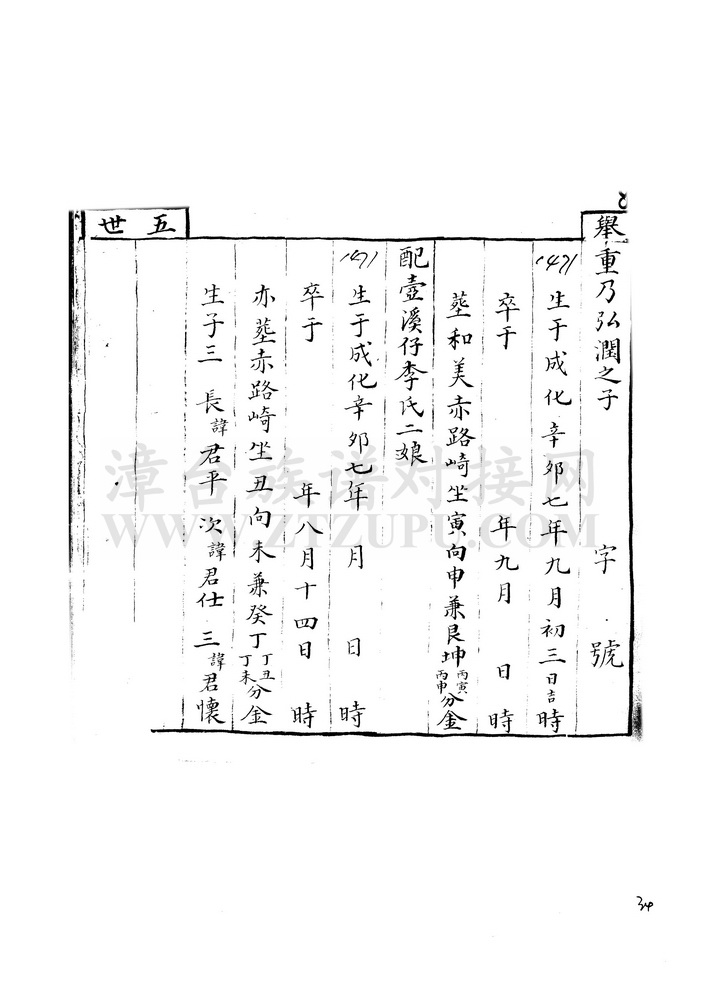 舉重乃弘潤之子 字 號
1471 生于成化辛夘七年九月初三日吉時
卒于 年九月 日 時
塟和美赤路崎坐寅向申兼艮坤丙寅丙申分金
配壺溪仔李氏二娘
1471 生于成化辛夘七年 月 日 時
卒于 年八月十四日 時
亦塟赤路崎坐丑向未兼癸丁丁丑丁未分金
生子三 長諱君平 次諱君仕 三諱君懷
五世
漳台族谱对接网
WWW.ZTZUPU.COM
34